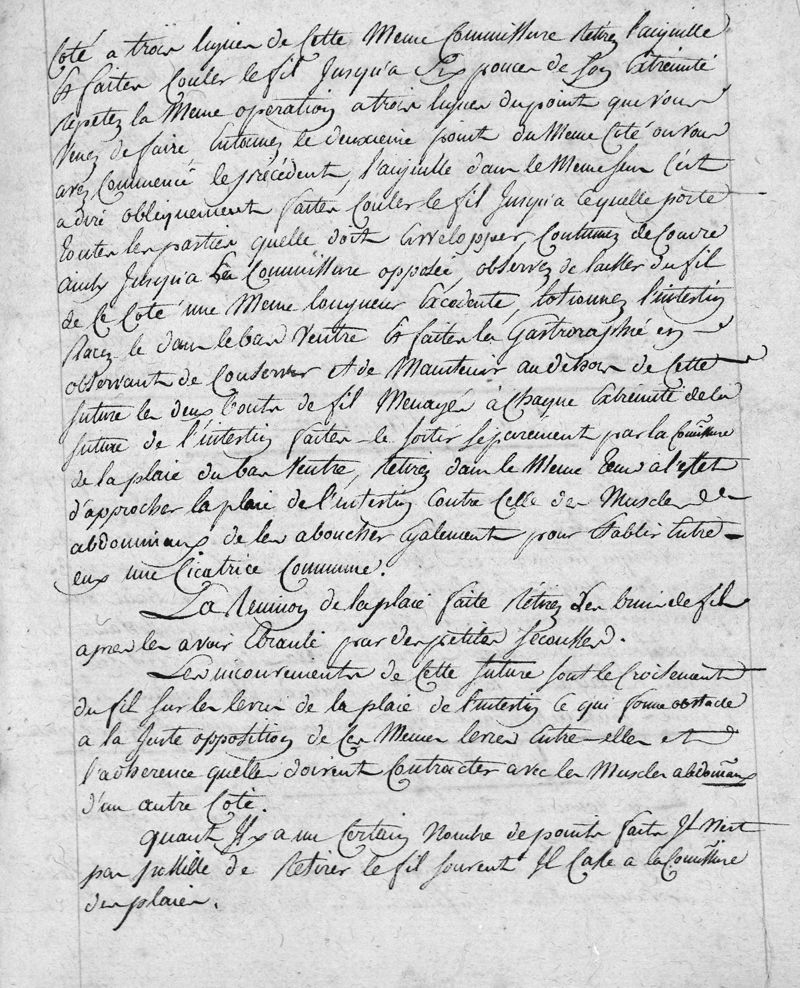 Coté a trois lignes de Cette Meme Commissure retirez l'aiguille
Et faites Couler le fil Jusqu'a Six pouces de Son Extremité
repetez la Meme operation a trois lignes du point que vous
venez de faire, Entamez le deuxieme point du Meme Coté ou vous
avez Commencé le précédent, l'aiguille dans le Meme sens C'est
a dire obliquement faites Couler le fil Jusqu'a ce quelle porte
toutes les parties quelle doit Envelopper, Continuez de Coudre
ainsy Jusqu'a La Commissure opposée, observez de laisser du fil
de Ce Coté une Meme longueur Excedente, lotionnez l'intestin
Placez le dans le bas Ventre Et faites la Gastroraphie en
observant de Conserver et de Maintenir au dehors de Cette
suture les deux bouts de fil Menagés à Chaque Extremité de la
suture de l'intestin faites-le sortir séparément par la Commissure
de la plaie du bas Ventre, retirez dans le Meme tems a l'effet
d'approcher la plaie de l'intestin Contre Celle des Muscles
abdominaux de les aboucher Egalement pour Etablir Entre-
eux une Cicatrice Commune.
La Reunion de la plaie faite retirez Les brins de fil
après les avoir Ebranlé par des petites secousses.
Les inconvenients de Cette suture sont le Croisement
du fil sur les levres de la plaie de l'intestin ce qui forme obstacle
a la Juste opposition de Ces Memes levres Entre-elles et
l'adherence quelles doivent Contracter avec les Muscles abdominaux
d'un autre Coté.
quant Il y a un Certain Nombre de points faits Il N'est
pas possible de Retirer le fil souvent Il Casse a la Commissure
des plaies.